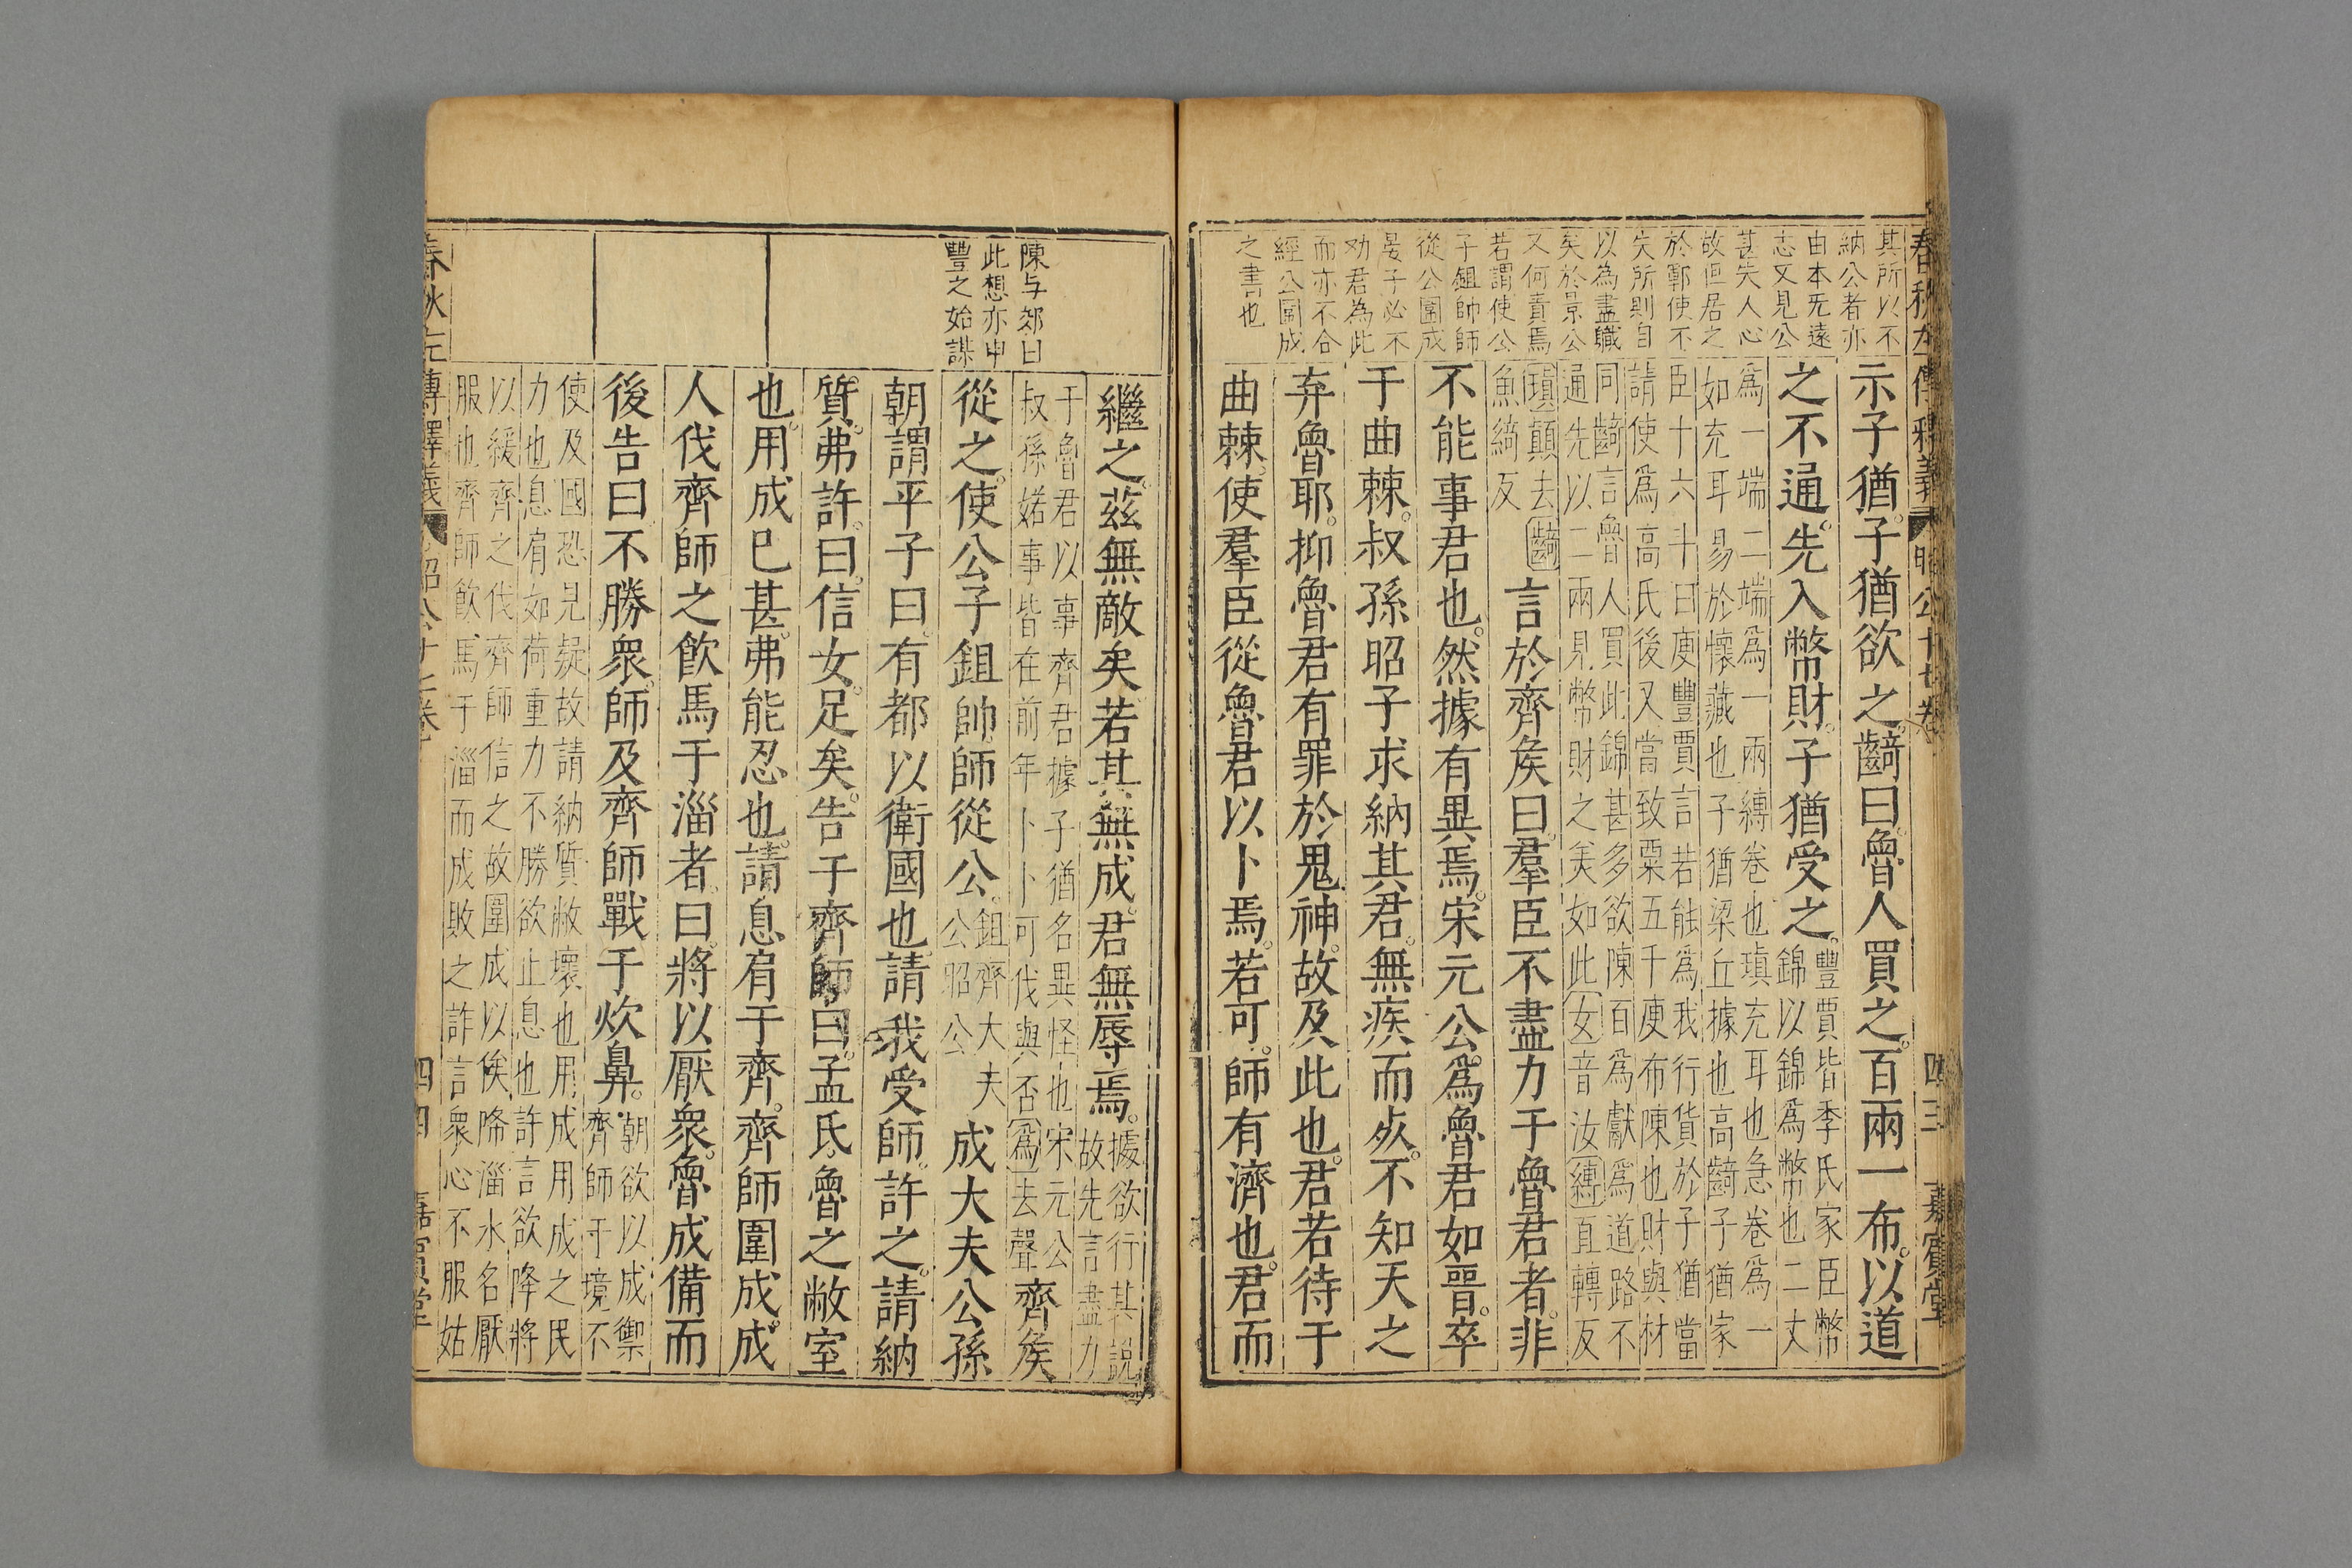 春秋左傳釋義 昭公十七卷 四三 嘉賓堂
其所以不
納公者亦
由本无遠
志又見公
甚失人心
故但居之
於鄆使不
失所則自
以為盡職
矣於景公
又何責焉
若謂使公
子鉏帥師
從公圍成
晏子必不
劝君為此
而亦不合
經公圍成
之書也
示子猶子猶欲之齮曰魯人買之百兩一布以道
之不通先入幣財子猶受之豐賈皆季氏家臣幣
錦以錦為幣也二丈
爲一端二端爲一兩縛卷也瑱充耳也急卷爲一
如充耳易於懷藏也子猶梁丘據也高齮子猶家
臣十六斗曰庾豐賈言若能爲我行貨於子猶當
請使爲高氏後又當致粟五千庾布陳也財與材
同齮言魯人買此錦甚多欲陳百爲獻爲道路不
通先以二兩見幣財之美如此女音汝縛直轉反
瑱顛去齮
魚綺反
言於齊矦曰羣臣不盡力于魯君者非
不能事君也然據有異焉宋元公爲魯君如晉卒
于曲棘叔孫昭子求納其君無疾而死不知天之
弃魯耶抑魯君有罪於鬼神故及此也君若待于
曲棘使羣臣從魯君以卜焉若可師有濟也君而
陳与郊曰
此想亦申
豐之始謀
繼之茲無敵矣若其無成君無辱焉據欲行其說
故先言盡力
于魯君以事齊君據子猶名異怪也宋元公
叔孫婼事皆在前年卜卜可伐與否爲去聲
齊矦
從之使公子鉏帥師從公鉏齊大夫
公昭公
成大夫公孫
朝謂平子曰有都以衛國也請我受師許之請納
質弗許曰信女足矣告于齊師曰孟氏魯之敝室
也用成已甚弗能忍也請息肩于齊齊師圍成成
人伐齊師之飲馬于淄者曰將以厭衆魯成備而
後告曰不勝衆師及齊師戰于炊鼻朝欲以成禦
齊師于境不
使及國恐見疑故請納質敝壞也用成用成之民
力也息肩如荷重力不勝欲止息也許言欲降將
以緩齊之伐齊師信之故圍成以俟降淄水名厭
服也齊師飲馬于淄而成敗之詐言衆心不服姑
春秋左傳釋義 昭公十七卷 四四 嘉賓堂